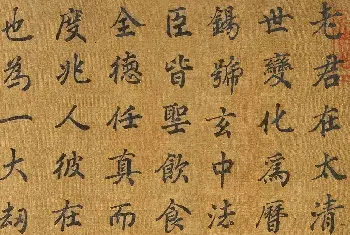 老君在太清
世變化爲曆
錫號玄中法
臣皆聖飲食
全德任真而
度兆人彼在
也為一大刧